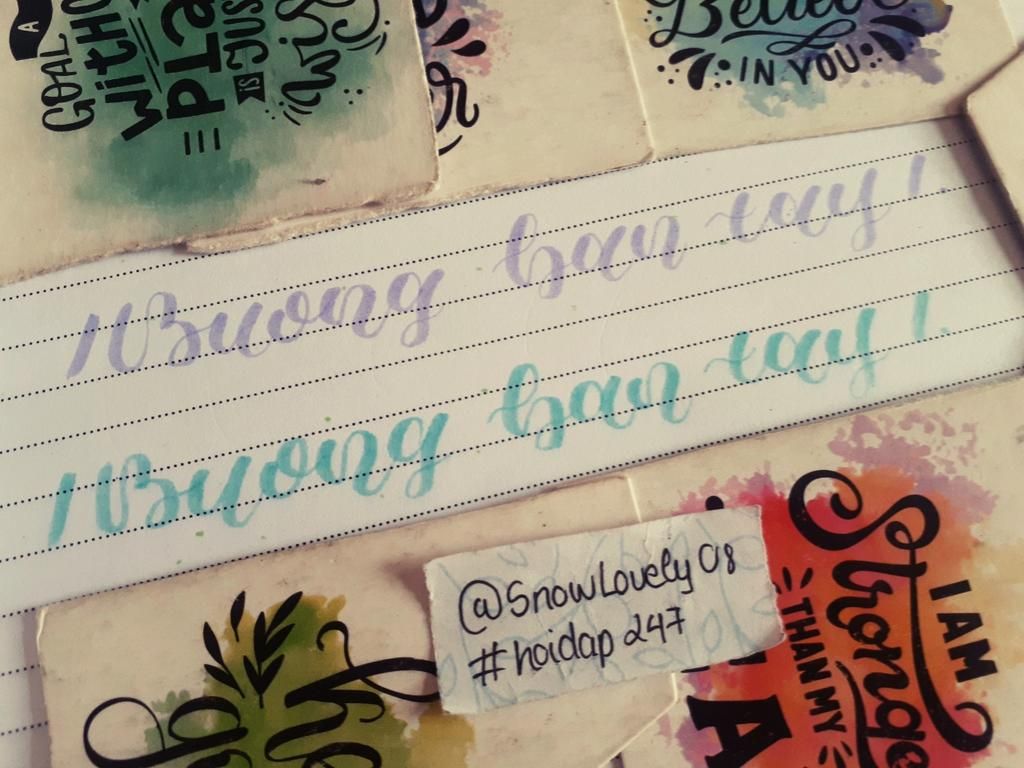 A
GOAL
WITHO
PLA
IS JUS
WIS
Believe
IN YOU
/Buong ban tay!.
/Buong ban tay!.
@SnowLovely08
#hoidap247
I AM
Stronge
THAN MY